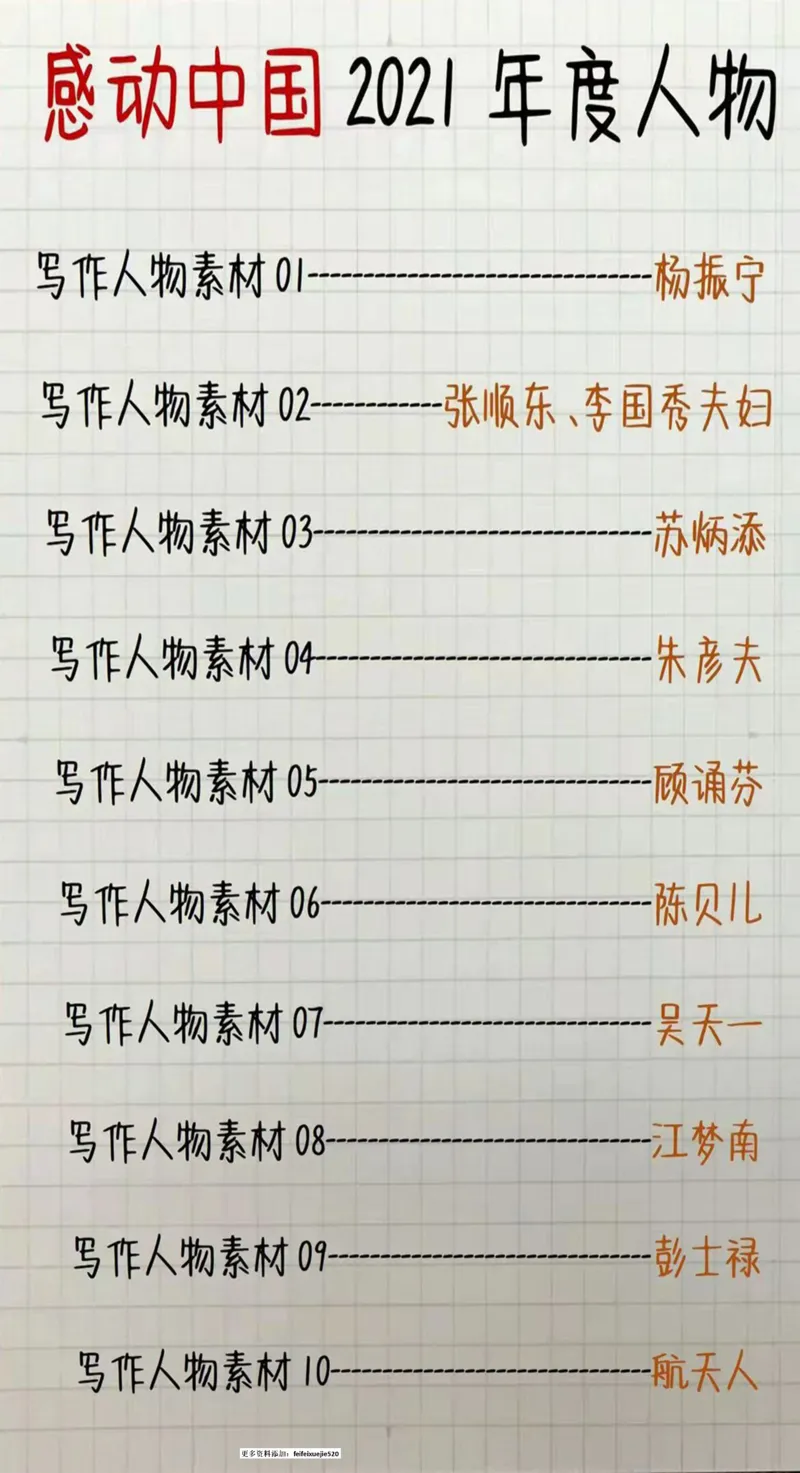 感动中国 2021 年度人物
写作人物素材 01------------------------------杨振宁
写作人物素材 02-----------张顺东、李国秀夫妇
写作人物素材 03------------------------------苏炳添
写作人物素材 04------------------------------朱彦夫
写作人物素材 05------------------------------顾诵芬
写作人物素材 06------------------------------陈贝儿
写作人物素材 07------------------------------吴天一
写作人物素材 08------------------------------江梦南
写作人物素材 09------------------------------彭士禄
写作人物素材 10------------------------------航天人
更多资料添加：feifeixuejie520